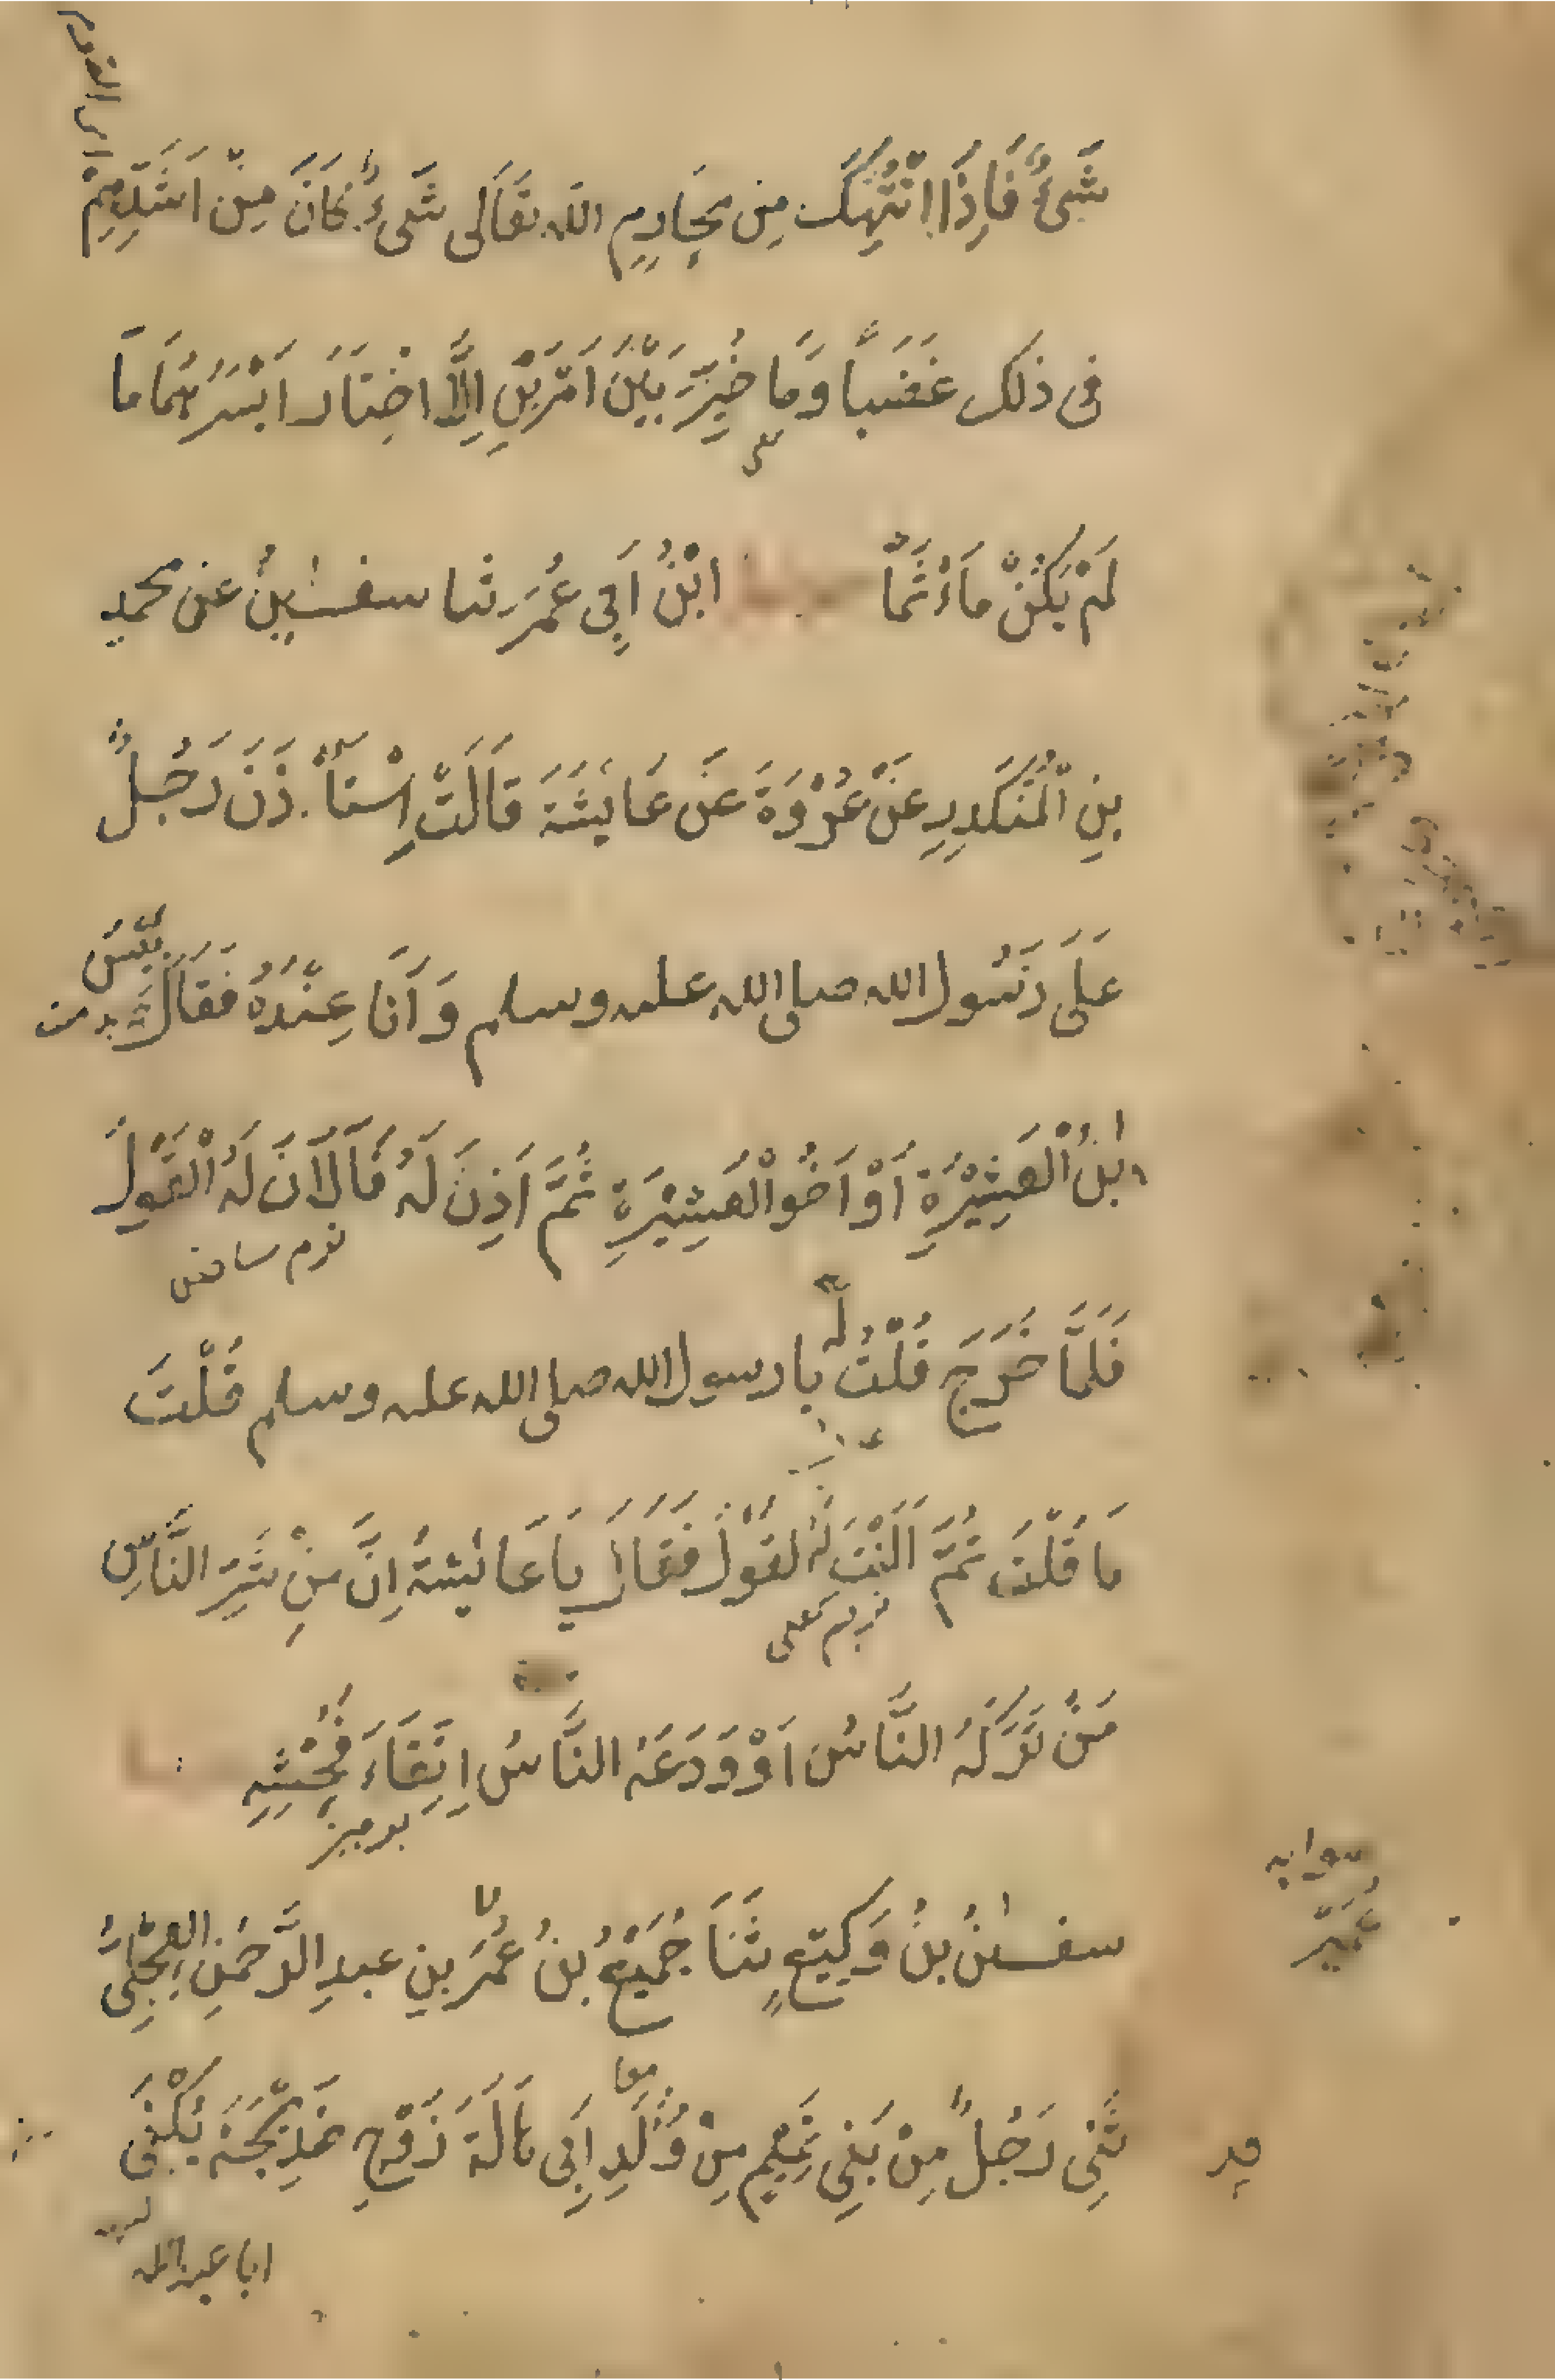 شَیْءٌ فَاِذَا انْتُهِكَ مِنْ مَحَارِمِ اللّٰهِ تَعَالٰى شَیْءٌ كَانَ مِنْ اَشَدِّهِمْ
فِى ذٰلِكَ غَضَبًا وَمَا خُيِّرَ بَيْنَ اَمْرَيْنِ اِلَّا اخْتَارَ اَيْسَرَهُمَا مَا
لَمْ يَكُنْ مَاْثَمًا ابْنُ اَبِى عُمَرَ ثنا سفيٰنُ عن محمدِ
بنِ الْمُنْكَدِرِ عَنْ عُرْوَةَ عَنْ عَائِشَةَ قَالَتْ اِسْتَاْذَنَ رَجُلٌ
عَلَى رَسُولِ الله صلى الله عليه وسلم وَاَنَا عِنْدَهُ فَقَالَ بِئْسَ
ابْنُ الْعَشِيْرَةِ اَوْ اَخُو الْعَشِيْرَةِ ثُمَّ اَذِنَ لَهُ فَاَلَانَ لَهُ الْقَوْلَ
فَلَمَّا خَرَجَ قُلْتُ يا رسول الله صلى الله عليه وسلم قُلْتَ
لَهُ
مَا قُلْتَ ثُمَّ اَلَنْتَ لَهُ الْقَوْلَ فَقَالَ يَا عَائِشَةُ اِنَّ مِنْ شَرِّ النَّاسِ
مَنْ تَرَكَهُ النَّاسُ اَوْ وَدَعَهُ النَّاسُ اِتِّقَاءَ فُحْشِهِ
سفيٰنُ بْنُ وَكِيْعٍ ثَنَا جُمَيْعُ بْنُ عُمَرَ بنِ عبدِ الرَّحْمٰنِ الْعِجْلِىُّ
عُمَيْر
ثَنِى رَجُلٌ مِنْ بَنِى تَمِيْمٍ مِنْ وُلْدِ اَبِى هَالَةَ زَوْجِ خَدِيْجَةَ يُكْنٰى
ابا عبدالله